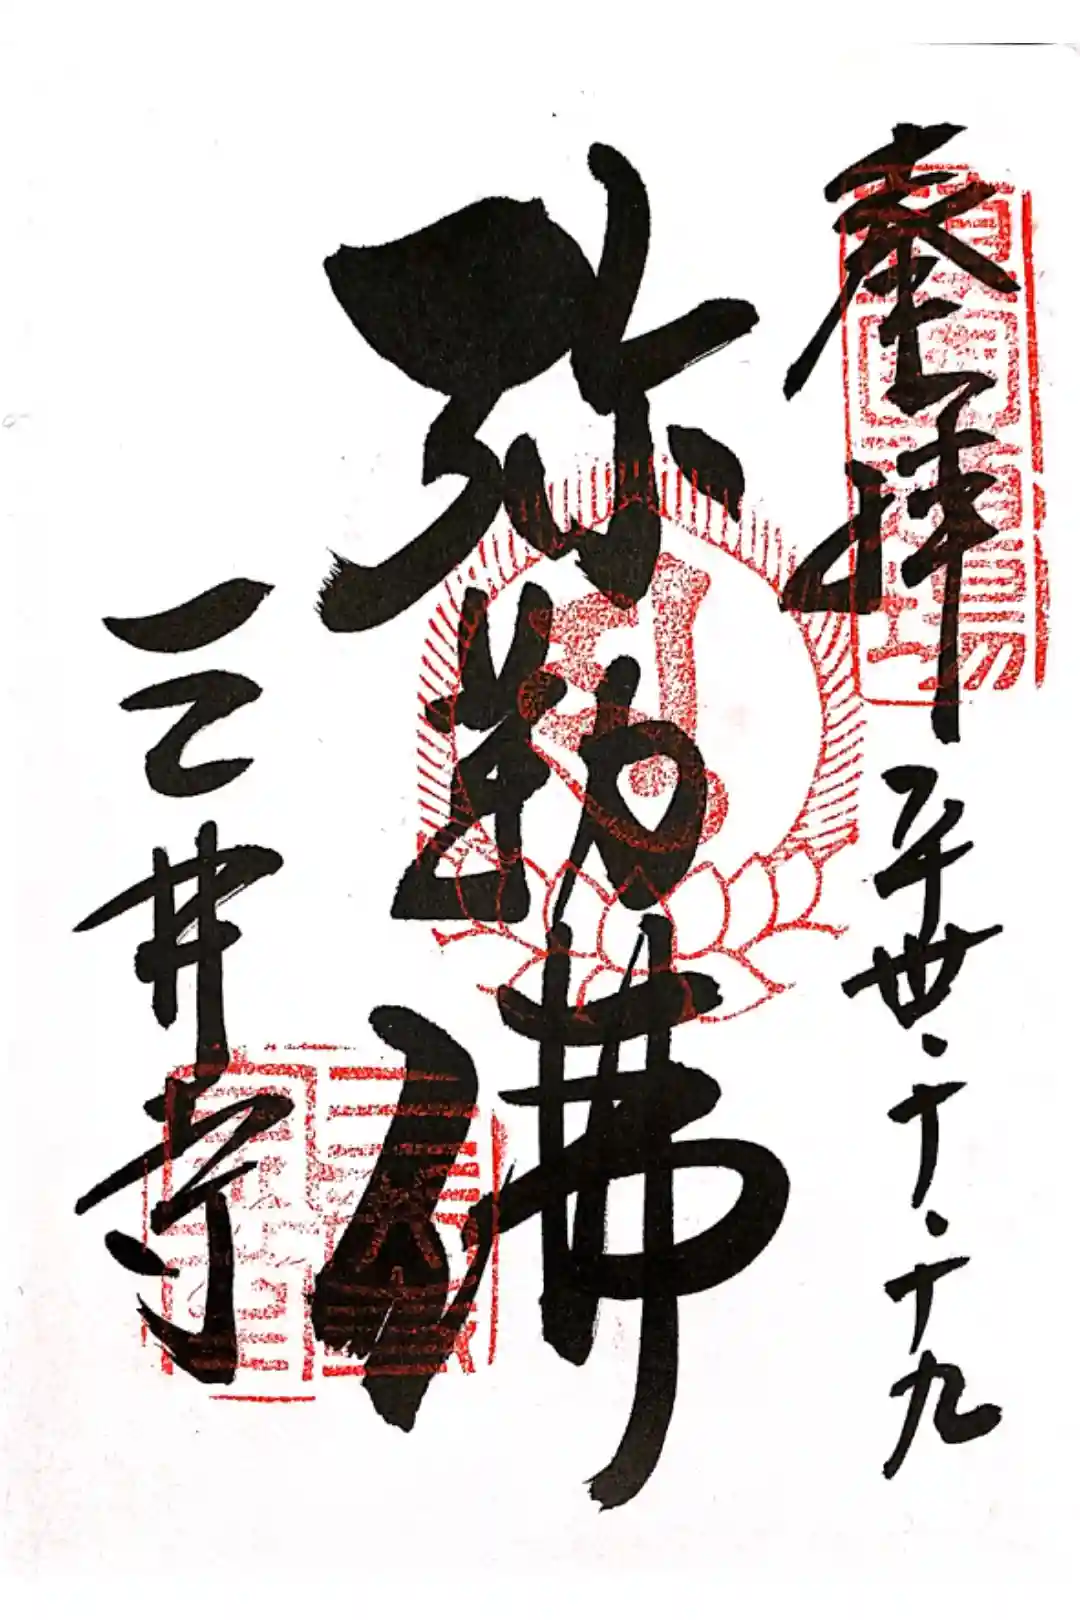 奉拝 平卅・十・十九
弥勒佛
三井寺